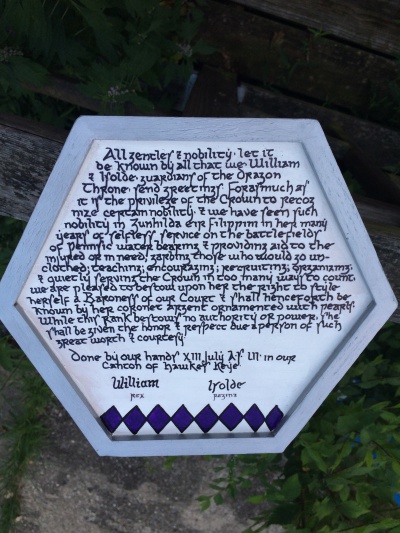 All gentles & nobility, let it
be known by all that we William
& Isolde, guardians of the Dragon
Throne send greetings. Forasmuch as
it is the privilege of the Crown to recog
nize certain nobility, & we have seen such
nobility in Gunhilda in her many
years of selfless service on the battlefields
of Pennsic water bearing & providing aid to the
injured or in need; garbing those who would go un-
clothed; teaching; encouraging; recruiting; organizing;
& quietly serving the Crown in too many ways to count,
we are pleased to bestow upon her the right to style
herself a Baroness of our Court & shall henceforth be
known by her coronet argent ornamented with pearls.
While this rank bestows no authority or power, she
shall be given the honor & respect due a person of such
great worth & courtesy.
Done by our hands XIII July AS in our
Canton of Hawkes Reye
William Isolde
Rex Regina